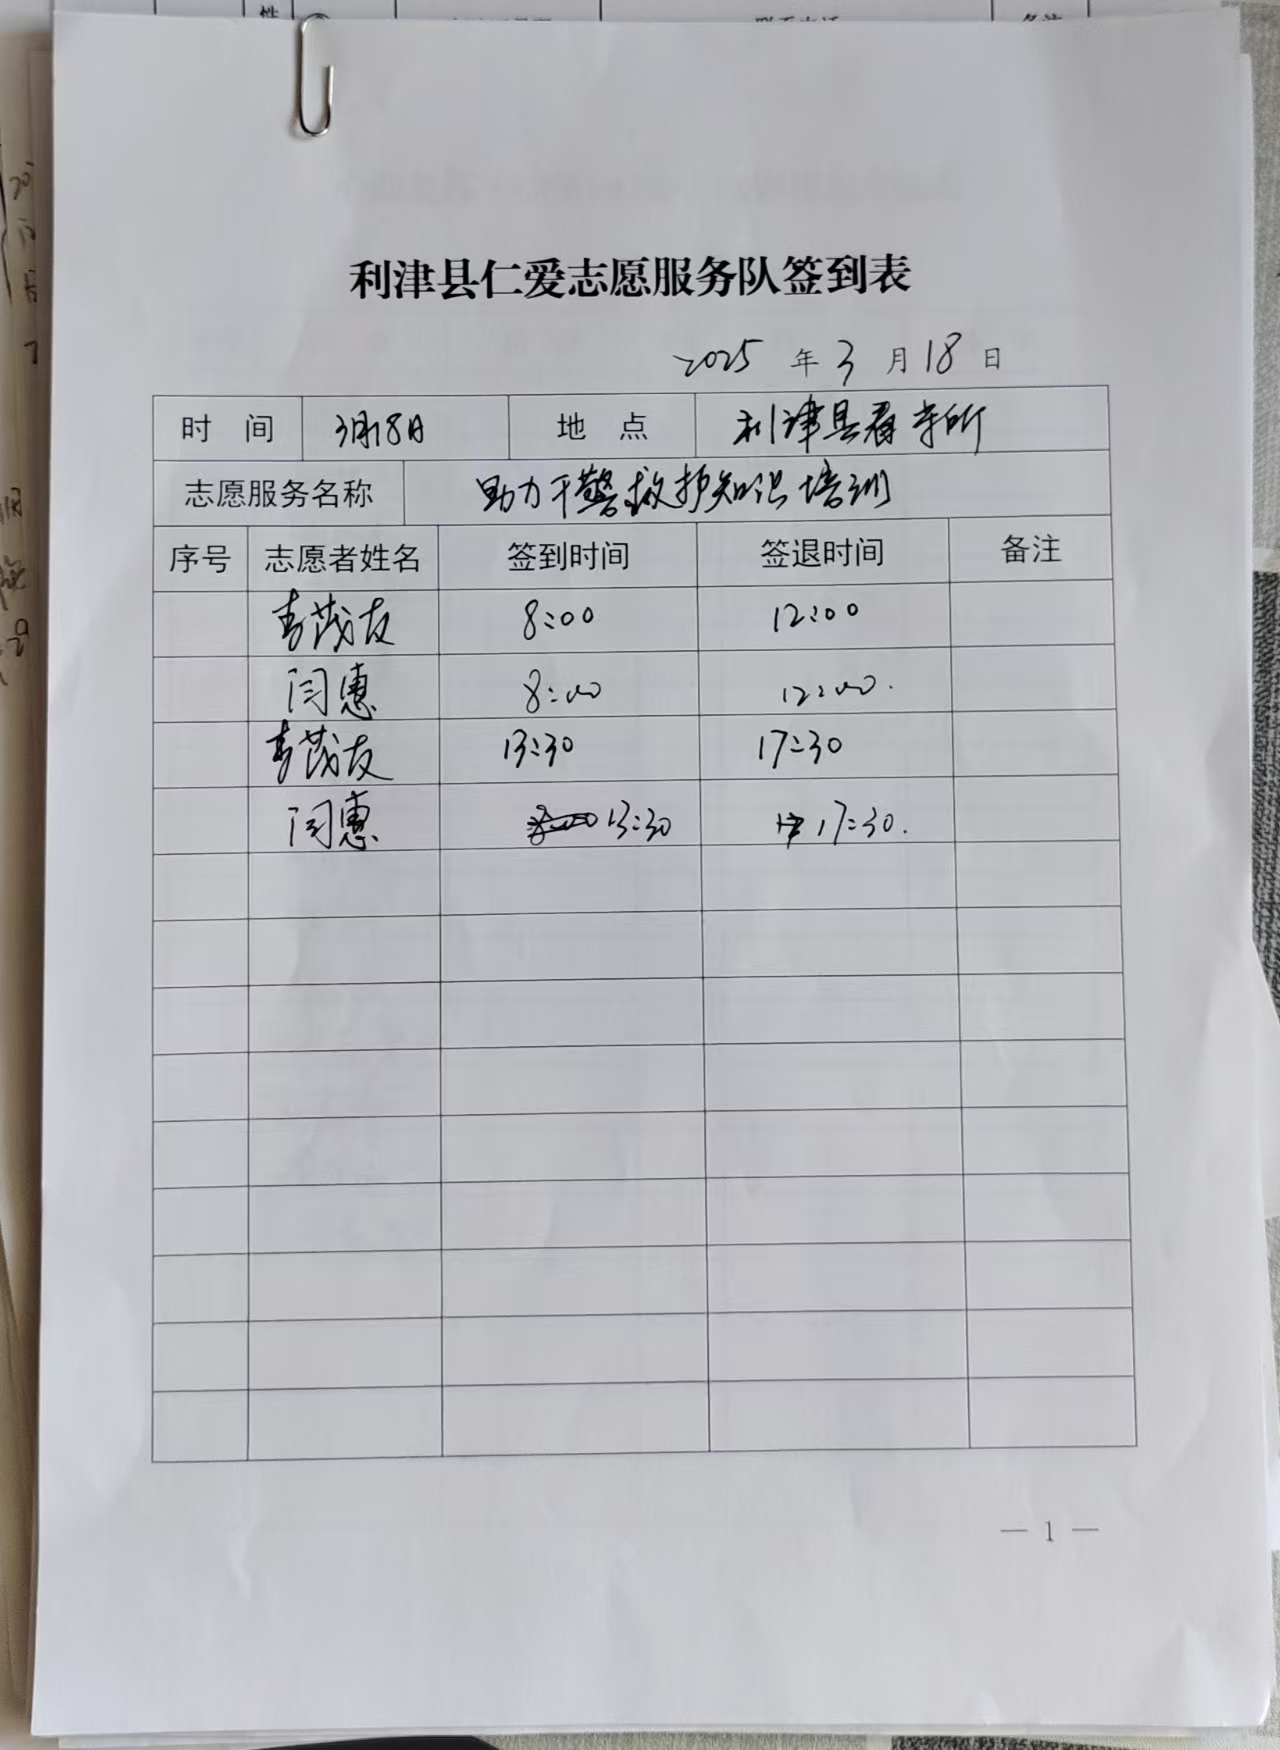 利津县仁爱志愿服务队签到表
2025 年 3 月 18 日
时 间 3月18日 地 点 利津县看守所
志愿服务名称 助力干警救护知识培训
序号 志愿者姓名 签到时间 签退时间 备注
茂友 8:00 12:00
闫惠 8:00 12:00.
茂友 13:30 17:30
闫惠 13:30 17:30.
— 1 —